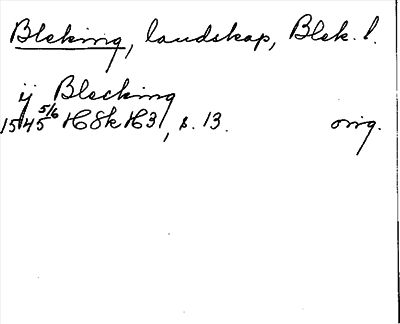 Bleking, landskap, Blek. l.
ij Blecking
1545 5/6 HSk H31, s. 13. orig.